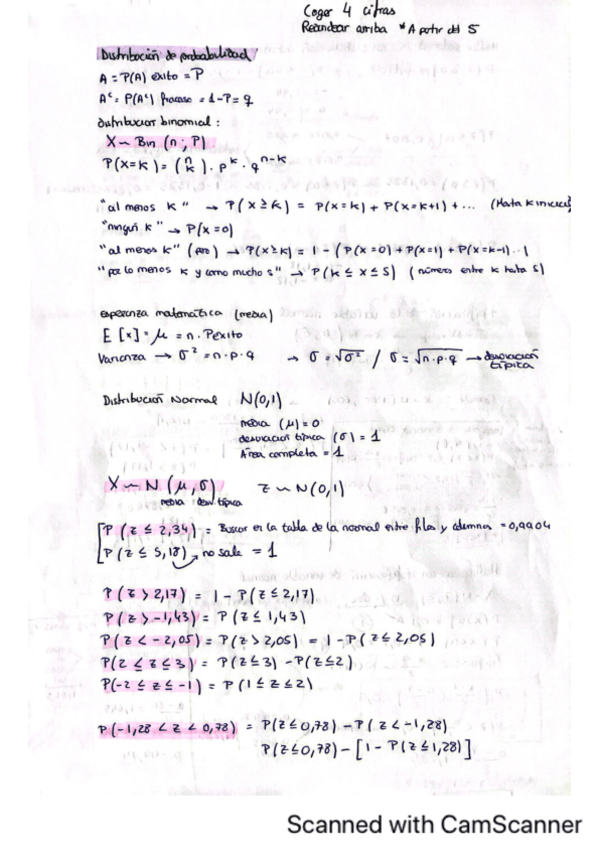 Coger 4 cifras
Redondear arriba * A partir del 5
Distribución de probabilidad
A = P(A) éxito = P
Aᶜ = P(Aᶜ) fracaso = 1-P = q
distribución binomial:
X ~ Bin (n; P)
P(X=K) = (n K) · p^K · q^(n-K)
"al menos K" → P(X≥K) = P(X=K) + P(X=K+1) + ...
"ningún K" → P(X=0)
"al menos K" (pro) → P(X≥K) = 1 - (P(X=0) + P(X=1) + P(X=K-1)...)
"por lo menos K y como mucho s" → P(K ≤ X ≤ S) (número entre K hasta S)
esperanza matemática (media)
E [x] = μ = n · Péxito
Varianza → σ² = n·p·q → σ = √σ² / σ = √n·p·q → desviación típica
Distribución Normal N(0,1)
media (μ) = 0
desviación típica (σ) = 1
Área completa = 1
X ~ N (μ, σ) Z ~ N(0,1)
media desv. típica
P (Z ≤ 2,34) = Buscar en la tabla de la normal entre fila y columna = 0,9904
P (Z ≤ 5,18) → no sale = 1
P (Z > 2,17) = 1 - P(Z ≤ 2,17)
P (Z > -1,43) = P (Z ≤ 1,43)
P (Z < -2,05) = P(Z > 2,05) = 1 - P(Z ≤ 2,05)
P(2 ≤ Z ≤ 3) = P(Z ≤ 3) - P(Z ≤ 2)
P(-2 ≤ Z ≤ -1) = P(1 ≤ Z ≤ 2)
P(-1,28 < Z < 0,78) = P(Z ≤ 0,78) - P(Z < -1,28)
P(Z ≤ 0,78) - [1 - P(Z ≤ 1,28)]
Scanned with CamScanner